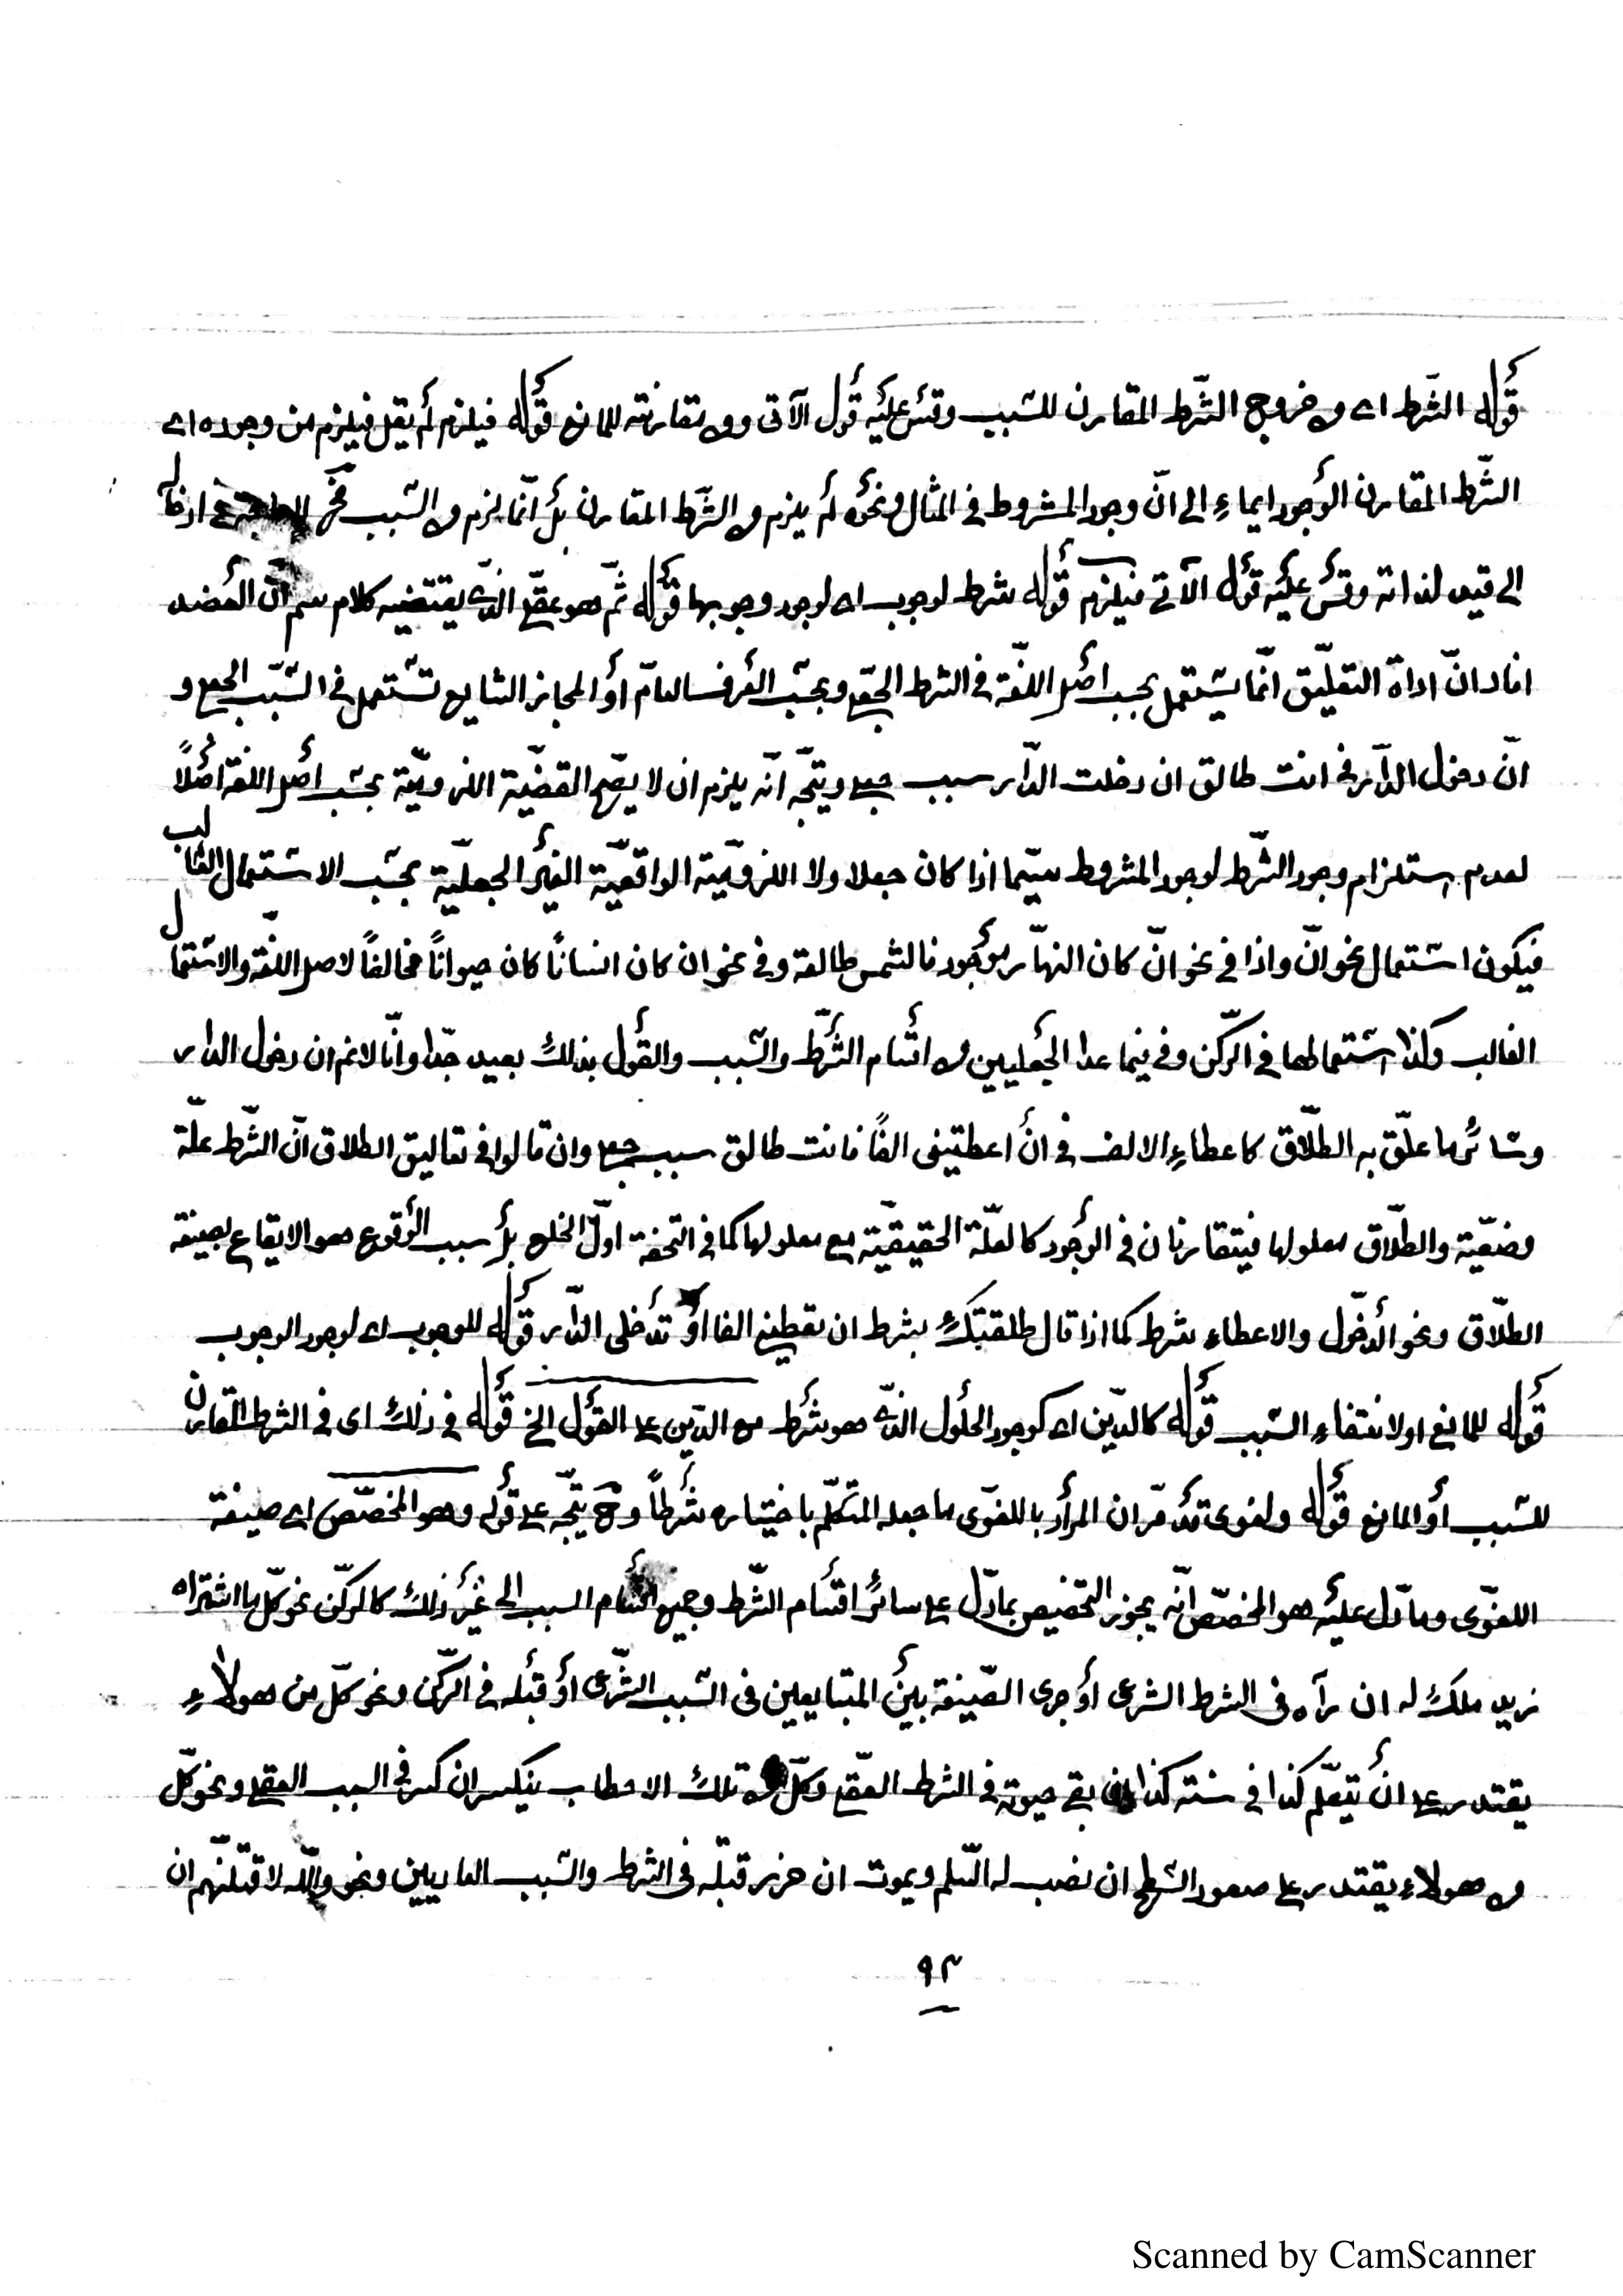 قوله الشرط اى من خروج الشرط المقارن للسبب وقس عليه قول الآتى ومن مقارنته للمانع قوله فيلزم لم يقل فيلزم من وجوده اى
الشرط المقارن الوجود ايماءِ الى انّ وجود المشروط فى المثال ونحوه لم يلزم من الشرط المقارن بل انّما لزم من السبب فح
الى قيد لذاته وقس عليه قول الآتى فيلزم قوله شرط لوجوب اى لوجود وجوبها قوله ثمّ هو عقلى الذى يقتضيه كلام سم انّ العضد
افاد انّ اداة التعليق انّما يستعمل بحسب اصل اللغة فى الشرط الجعلى وبحسب العرف العامّ أو المجاز الشايع تستعمل فى السبب الجعلى و
انّ دخول الدّار فى انت طالق ان دخلت الدّار سبب جعلى ويتّجه انّه يلزم ان لا يصحّ القضيّة اللزوميّة بحسب أصل اللغة أصلاً
لعدم استلزام وجود الشّرط لوجود المشروط سيّما اذا كان جعلا ولا اللزوميّة الواقعيّة الغير الجعليّة بحسب الاستعمال الغالب
فيكون استعمال نحو انّ واذا فى نحو انّ كان النهار موجود فالشمس طالعة وفى نحو ان كان انسانًا كان حيوانًا مخالفًا لاصل اللغة والاستعمال
الغالب وكذا استعمالها فى الركن وفى فيما عدا الجعليين من اقسام الشرط والسبب والقول بذلك بعيد جدّا وانّا لا نم ان دخول الدار
وسائر ما علّق به الطلاق كاعطاءِ الالف فى انّ اعطيتنى الفًا فانت طالق سبب جعلى وان قالوا فى تعاليق الطلاق انّ الشرط علّة
وضعيّة والطلاق معلولها فيتقارنان فى الوجود كالعلّة الحقيقيّة مع معلولها كما فى التحفة اوّل الخلع بل سبب الوقوع هو الايقاع بصيغة
الطلاق ونحو الدخول والاعطاء شرط كما اذا قال طلقتك بشرط ان تعطينى الفا أو تدخلى الدار قوله للوجوب اى لوجود الوجوب
قوله للمانع او لانتفاءِ السبب قوله كالدين اى كوجود الحلول الذى هو شرط مع الدين على القول الخ قوله فى ذلك اى فى الشرط المقارن
للسبب أو المانع قوله ولغوى قد مرّ ان المراد باللغوى ما جعله المتكلّم باختياره شرطاً وح يتّجه على قوله وهو المخصّص اى صيغة
اللغوى وما دلّ عليه هو المخصّص انّه يجوز التخصيص بما دلّ على سائر اقسام الشرط وجميع اقسام السبب الى غير ذلك كالركن نحو كلّ ما اشتراه
زيد ملك له ان رآه فى الشرط الشرعى أو جرى الصيغة بين المتبايعين فى السبب الشرعى أو قبله فى الركن ونحو كلّ من هولاءِ
يقتدر على أن يتعلّم كذا فى سنته كذا ان بقى حيوته فى الشرط العقلى وكلّ من تلك الاحطاب ينكسر ان كسر فى السبب العقلى ونحو كلّ
من هولاءِ يقتدر على صعود السطح ان نصب له السلم ويموت ان حزر قبله فى الشرط والسبب العاديين ونحو والله لاقتلنّهم ان
٩٢
Scanned by CamScanner